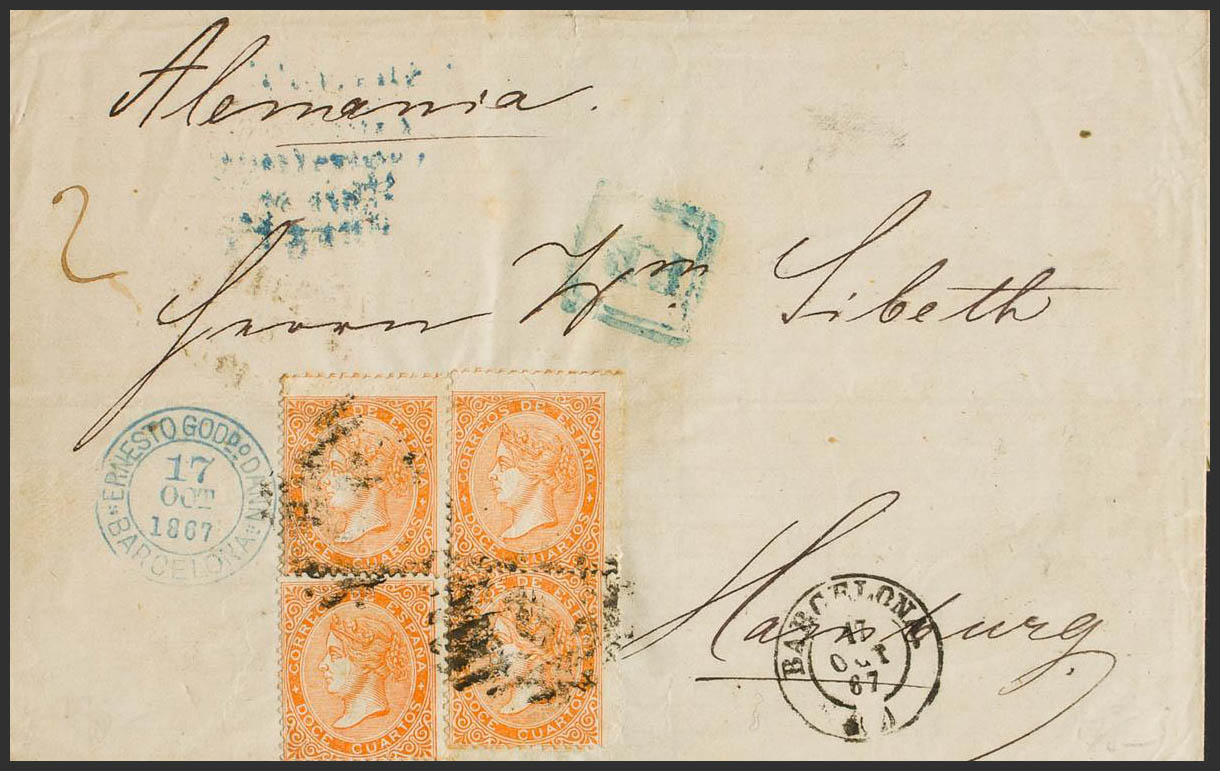 Alemania.
2
Herrn Wm Sibeth
ERNESTO GOD.º DANN
BARCELONA
17
OCT
1867
CORREOS DE ESPAÑA
DOCE CUARTOS
CORREOS DE ESPAÑA
DOCE CUARTOS
CORREOS DE ESPAÑA
DOCE CUARTOS
CORREOS DE ESPAÑA
DOCE CUARTOS
Hamburg
BARCELONA
17
OCT
67